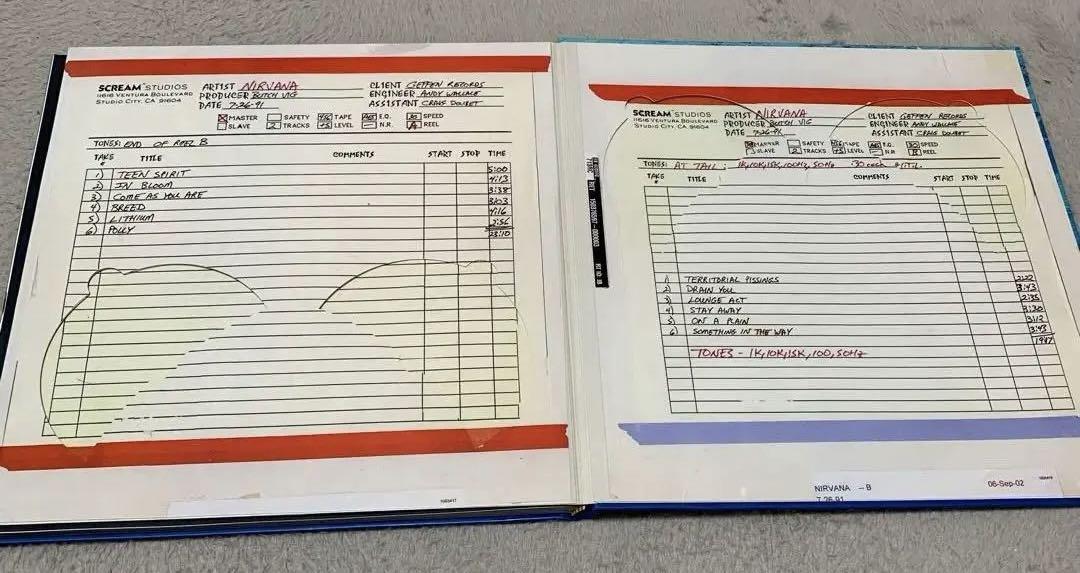 SCREAM STUDIOS
11616 VENTURA BOULEVARD
STUDIO CITY, CA 91604
ARTIST NIRVANA
PRODUCER BUTCH VIG
DATE 7-26-91
CLIENT GEFFEN RECORDS
ENGINEER ANDY WALLACE
ASSISTANT CRAIG DOUBET
MASTER SAFETY TAPE E.Q. 30 SPEED
SLAVE 2 TRACKS +5 LEVEL N.R. A REEL
TONES: END OF REEL B
TAKE # TITLE COMMENTS START STOP TIME
1) TEEN SPIRIT 5:00
2) IN BLOOM 4:13
3) COME AS YOU ARE 3:38
4) BREED 3:03
5) LITHIUM 4:16
6) POLLY 2:56
23:10
SCREAM STUDIOS
11616 VENTURA BOULEVARD
STUDIO CITY, CA 91604
ARTIST NIRVANA
PRODUCER BUTCH VIG
DATE 7-26-91
CLIENT GEFFEN RECORDS
ENGINEER ANDY WALLACE
ASSISTANT CRAIG DOUBET
MASTER SAFETY TAPE E.Q. 30 SPEED
SLAVE 2 TRACKS +5 LEVEL N.R. REEL
TONES: AT TAIL : 1K, 10K, 15K, 100HZ, 50HZ :30 each
TAKE # TITLE COMMENTS START STOP TIME
1) TERRITORIAL PISSINGS 2:22
2) DRAIN YOU 3:43
3) LOUNGE ACT 2:35
4) STAY AWAY 3:30
5) ON A PLAIN 3:12
6) SOMETHING IN THE WAY 3:43
TONES - 1K, 10K, 15K, 100, 50HZ
NIRVANA - B
7-26-91
06-Sep-02